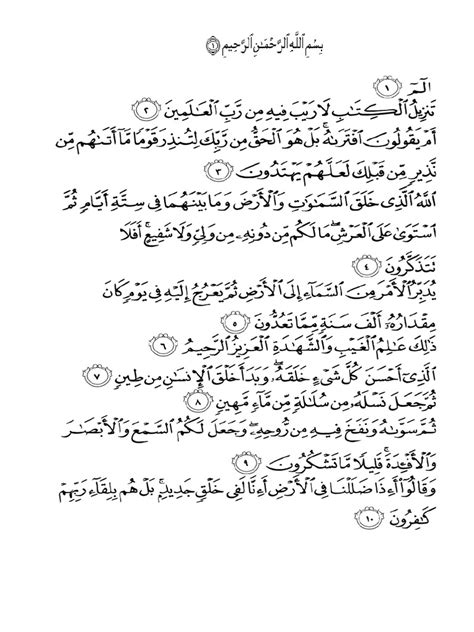 بِسْمِ ٱللَّهِ ٱلرَّحْمَـٰنِ ٱلرَّحِيمِ ۝١
الٓمٓ ۝١
تَنزِيلُ ٱلْكِتَـٰبِ لَا رَيْبَ فِيهِ مِن رَّبِّ ٱلْعَـٰلَمِينَ ۝٢
أَمْ يَقُولُونَ ٱفْتَرَىٰهُ ۚ بَلْ هُوَ ٱلْحَقُّ مِن رَّبِّكَ لِتُنذِرَ قَوْمًا مَّآ أَتَىٰهُم مِّن
نَّذِيرٍ مِّن قَبْلِكَ لَعَلَّهُمْ يَهْتَدُونَ ۝٣
ٱللَّهُ ٱلَّذِى خَلَقَ ٱلسَّمَـٰوَٰتِ وَٱلْأَرْضَ وَمَا بَيْنَهُمَا فِى سِتَّةِ أَيَّامٍ ثُمَّ
ٱسْتَوَىٰ عَلَى ٱلْعَرْشِ ۖ مَا لَكُم مِّن دُونِهِۦ مِن وَلِىٍّ وَلَا شَفِيعٍ ۚ أَفَلَا
تَتَذَكَّرُونَ ۝٤
يُدَبِّرُ ٱلْأَمْرَ مِنَ ٱلسَّمَآءِ إِلَى ٱلْأَرْضِ ثُمَّ يَعْرُجُ إِلَيْهِ فِى يَوْمٍ كَانَ
مِقْدَارُهُۥٓ أَلْفَ سَنَةٍ مِّمَّا تَعُدُّونَ ۝٥
ذَٰلِكَ عَـٰلِمُ ٱلْغَيْبِ وَٱلشَّهَـٰدَةِ ٱلْعَزِيزُ ٱلرَّحِيمُ ۝٦
ٱلَّذِىٓ أَحْسَنَ كُلَّ شَىْءٍ خَلَقَهُۥ ۖ وَبَدَأَ خَلْقَ ٱلْإِنسَـٰنِ مِن طِينٍ ۝٧
ثُمَّ جَعَلَ نَسْلَهُۥ مِن سُلَـٰلَةٍ مِّن مَّآءٍ مَّهِينٍ ۝٨
ثُمَّ سَوَّىٰهُ وَنَفَخَ فِيهِ مِن رُّوحِهِۦ ۖ وَجَعَلَ لَكُمُ ٱلسَّمْعَ وَٱلْأَبْصَـٰرَ
وَٱلْأَفْـِٔدَةَ ۚ قَلِيلًا مَّا تَشْكُرُونَ ۝٩
وَقَالُوٓا۟ أَءِذَا ضَلَلْنَا فِى ٱلْأَرْضِ أَءِنَّا لَفِى خَلْقٍ جَدِيدٍۭ ۚ بَلْ هُم بِلِقَآءِ رَبِّهِمْ
كَـٰفِرُونَ ۝١٠